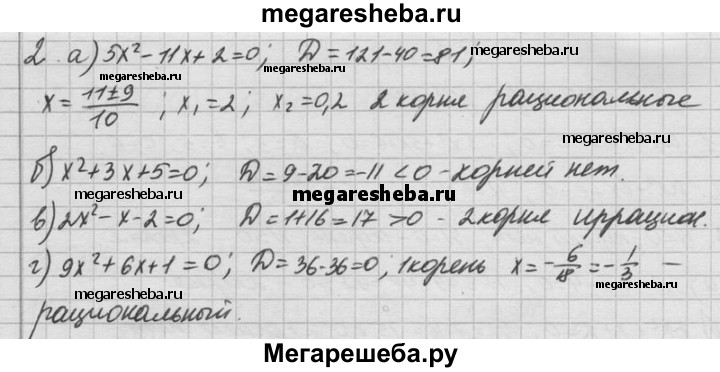 megaresheba.ru
2. а) 5x²-11x+2=0; D=121-40=81;
megaresheba.ru
megaresheba.ru
x = 11±9/10 ; x₁=2; x₂=0,2 2 корня рациональные
megaresheba.ru
б) x²+3x+5=0; D=9-20=-11<0 - корней нет.
megaresheba.ru
megaresheba.ru
в) 2x²-x-2=0; D=1+16=17>0 - 2 корня иррацион.
megaresheba.ru
г) 9x²+6x+1=0; D=36-36=0, 1 корень x=-6/18=-1/3 —
megaresheba.ru
megaresheba.ru
рациональный.
Мегарешеба.ру